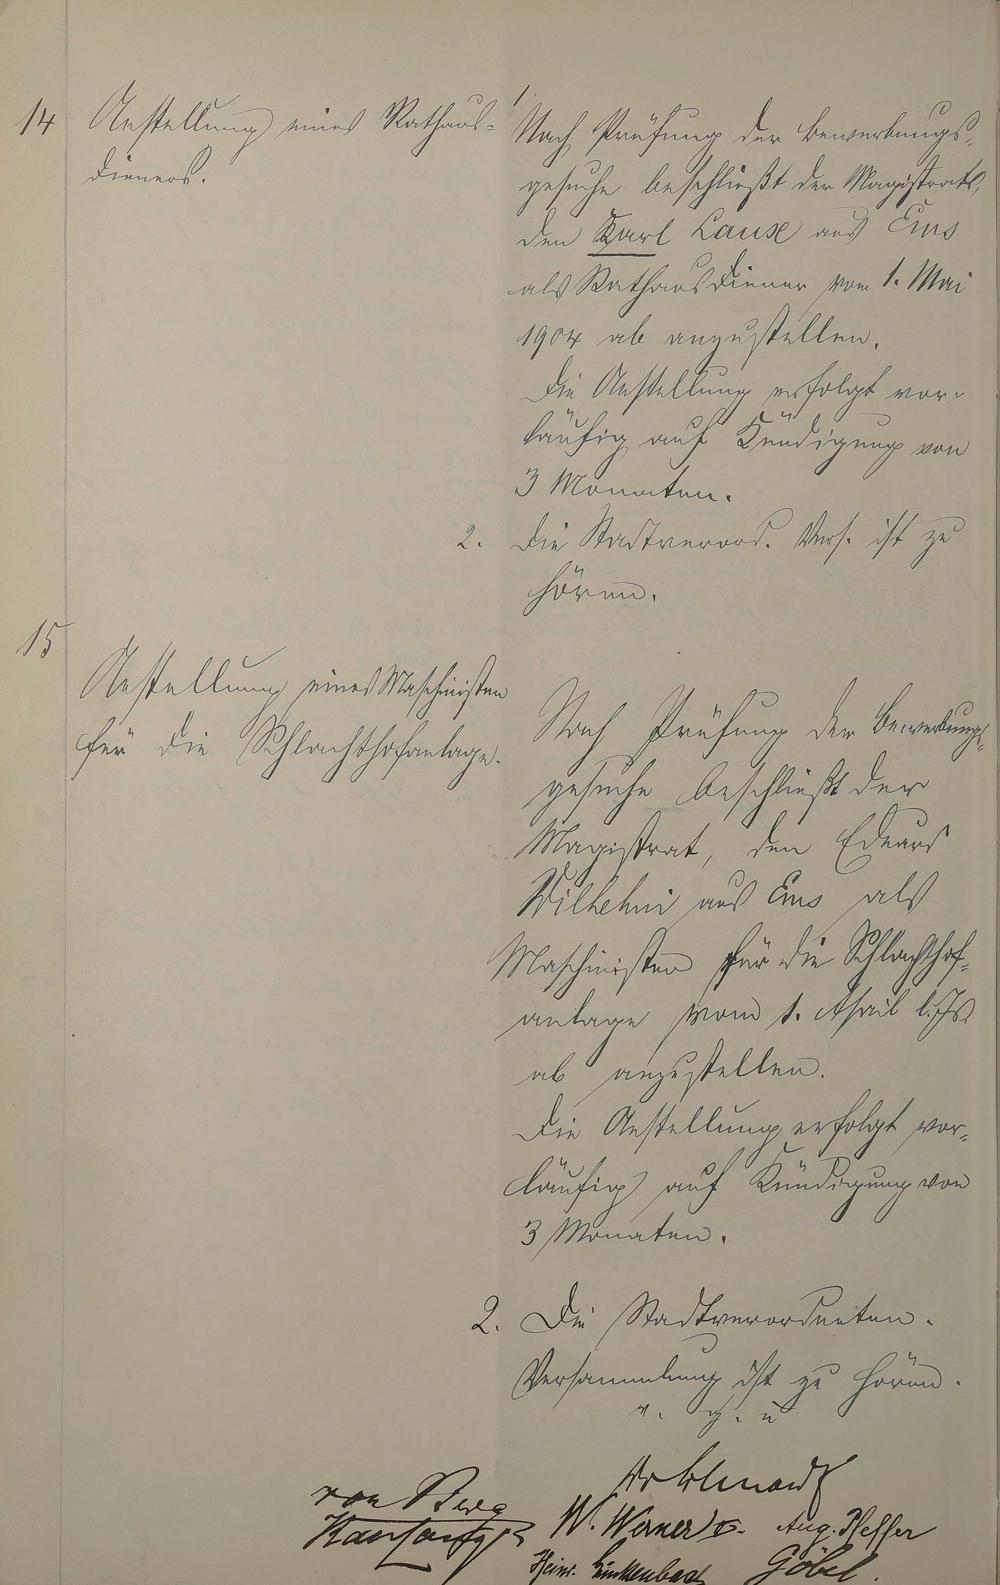 14 Anstellung eines Rathaus-
dieners.
1.
Nach Prüfung der Bewerbungs-
gesuche beschließt der Magistrat,
den Karl Lause aus Ems
als Rathausdiener vom 1. Mai
1904 ab anzustellen.
Die Anstellung erfolgt vor-
läufig auf Kündigung von
3 Monaten.
2. Die Stadtverord. Vers. ist zu
hören.
15
Anstellung eines Maschinisten
für die Schlachthofanlage.
Nach Prüfung der Bewerbungs-
gesuche beschließt der
Magistrat, den Eduard
Wilhelmi aus Ems als
Maschinisten für die Schlachthof-
anlage vom 1. April l. Js.
ab anzustellen.
Die Anstellung erfolgt vor-
läufig auf Kündigung von
3 Monaten.
2. Die Stadtverordneten-
Versammlung ist zu hören.
v. g. u
von Berg
W. Werner Aug. Pfeffer
Heinr. Linkenbach Göbel.